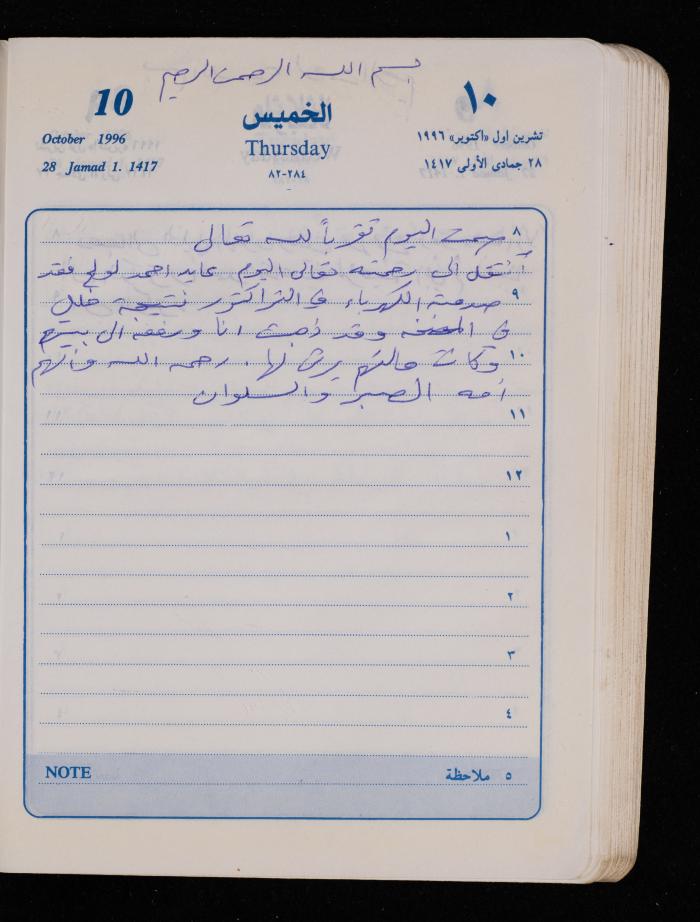 بسم الله الرحمن الرحيم
10
October 1996
28 Jamad 1. 1417
الخميس
Thursday
٨٢-٢٨٤
١٠
تشرين اول «اكتوبر» ١٩٩٦
٢٨ جمادى الأولى ١٤١٧
٨ صمت اليوم تقرباً لله تعالى
انتقل الى رحمته تعالى اليوم عايد احمد لولح فقد
٩ صدمته الكهرباء في التراكتور نتيجة خلل
في المضخه وقد ذهبت انا و الى بيتهم
١٠ وكانت حالتهم يرثى لها . رحمه الله وألهم
أمه الصبر والسلوان
١١
١٢
١
٢
٣
٤
NOTE
٥ ملاحظة